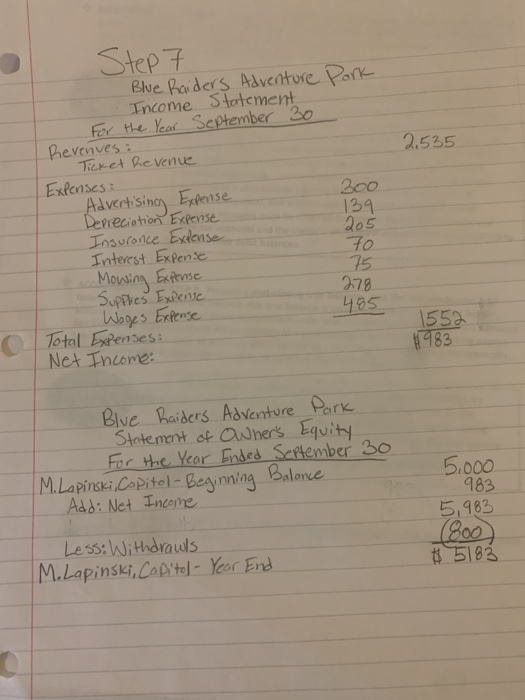 Step 7
Blue Raiders Adventure Park
Income Statement
For the Year September 30
Revenues: 2,535
Ticket Revenue
Expenses:
Advertising Expense 300
Depreciation Expense 139
Insurance Expense 205
Interest Expense 70
Mowing Expense 75
Supplies Expense 278
Wages Expense 485
Total Expenses: 1552
Net Income: $983
Blue Raiders Adventure Park
Statement of Owner's Equity
For the Year Ended September 30
M.Lapinski, Capitol - Beginning Balance 5,000
Add: Net Income 983
5,983
Less: Withdrawls (800)
M.Lapinski, Capitol - Year End $ 5183